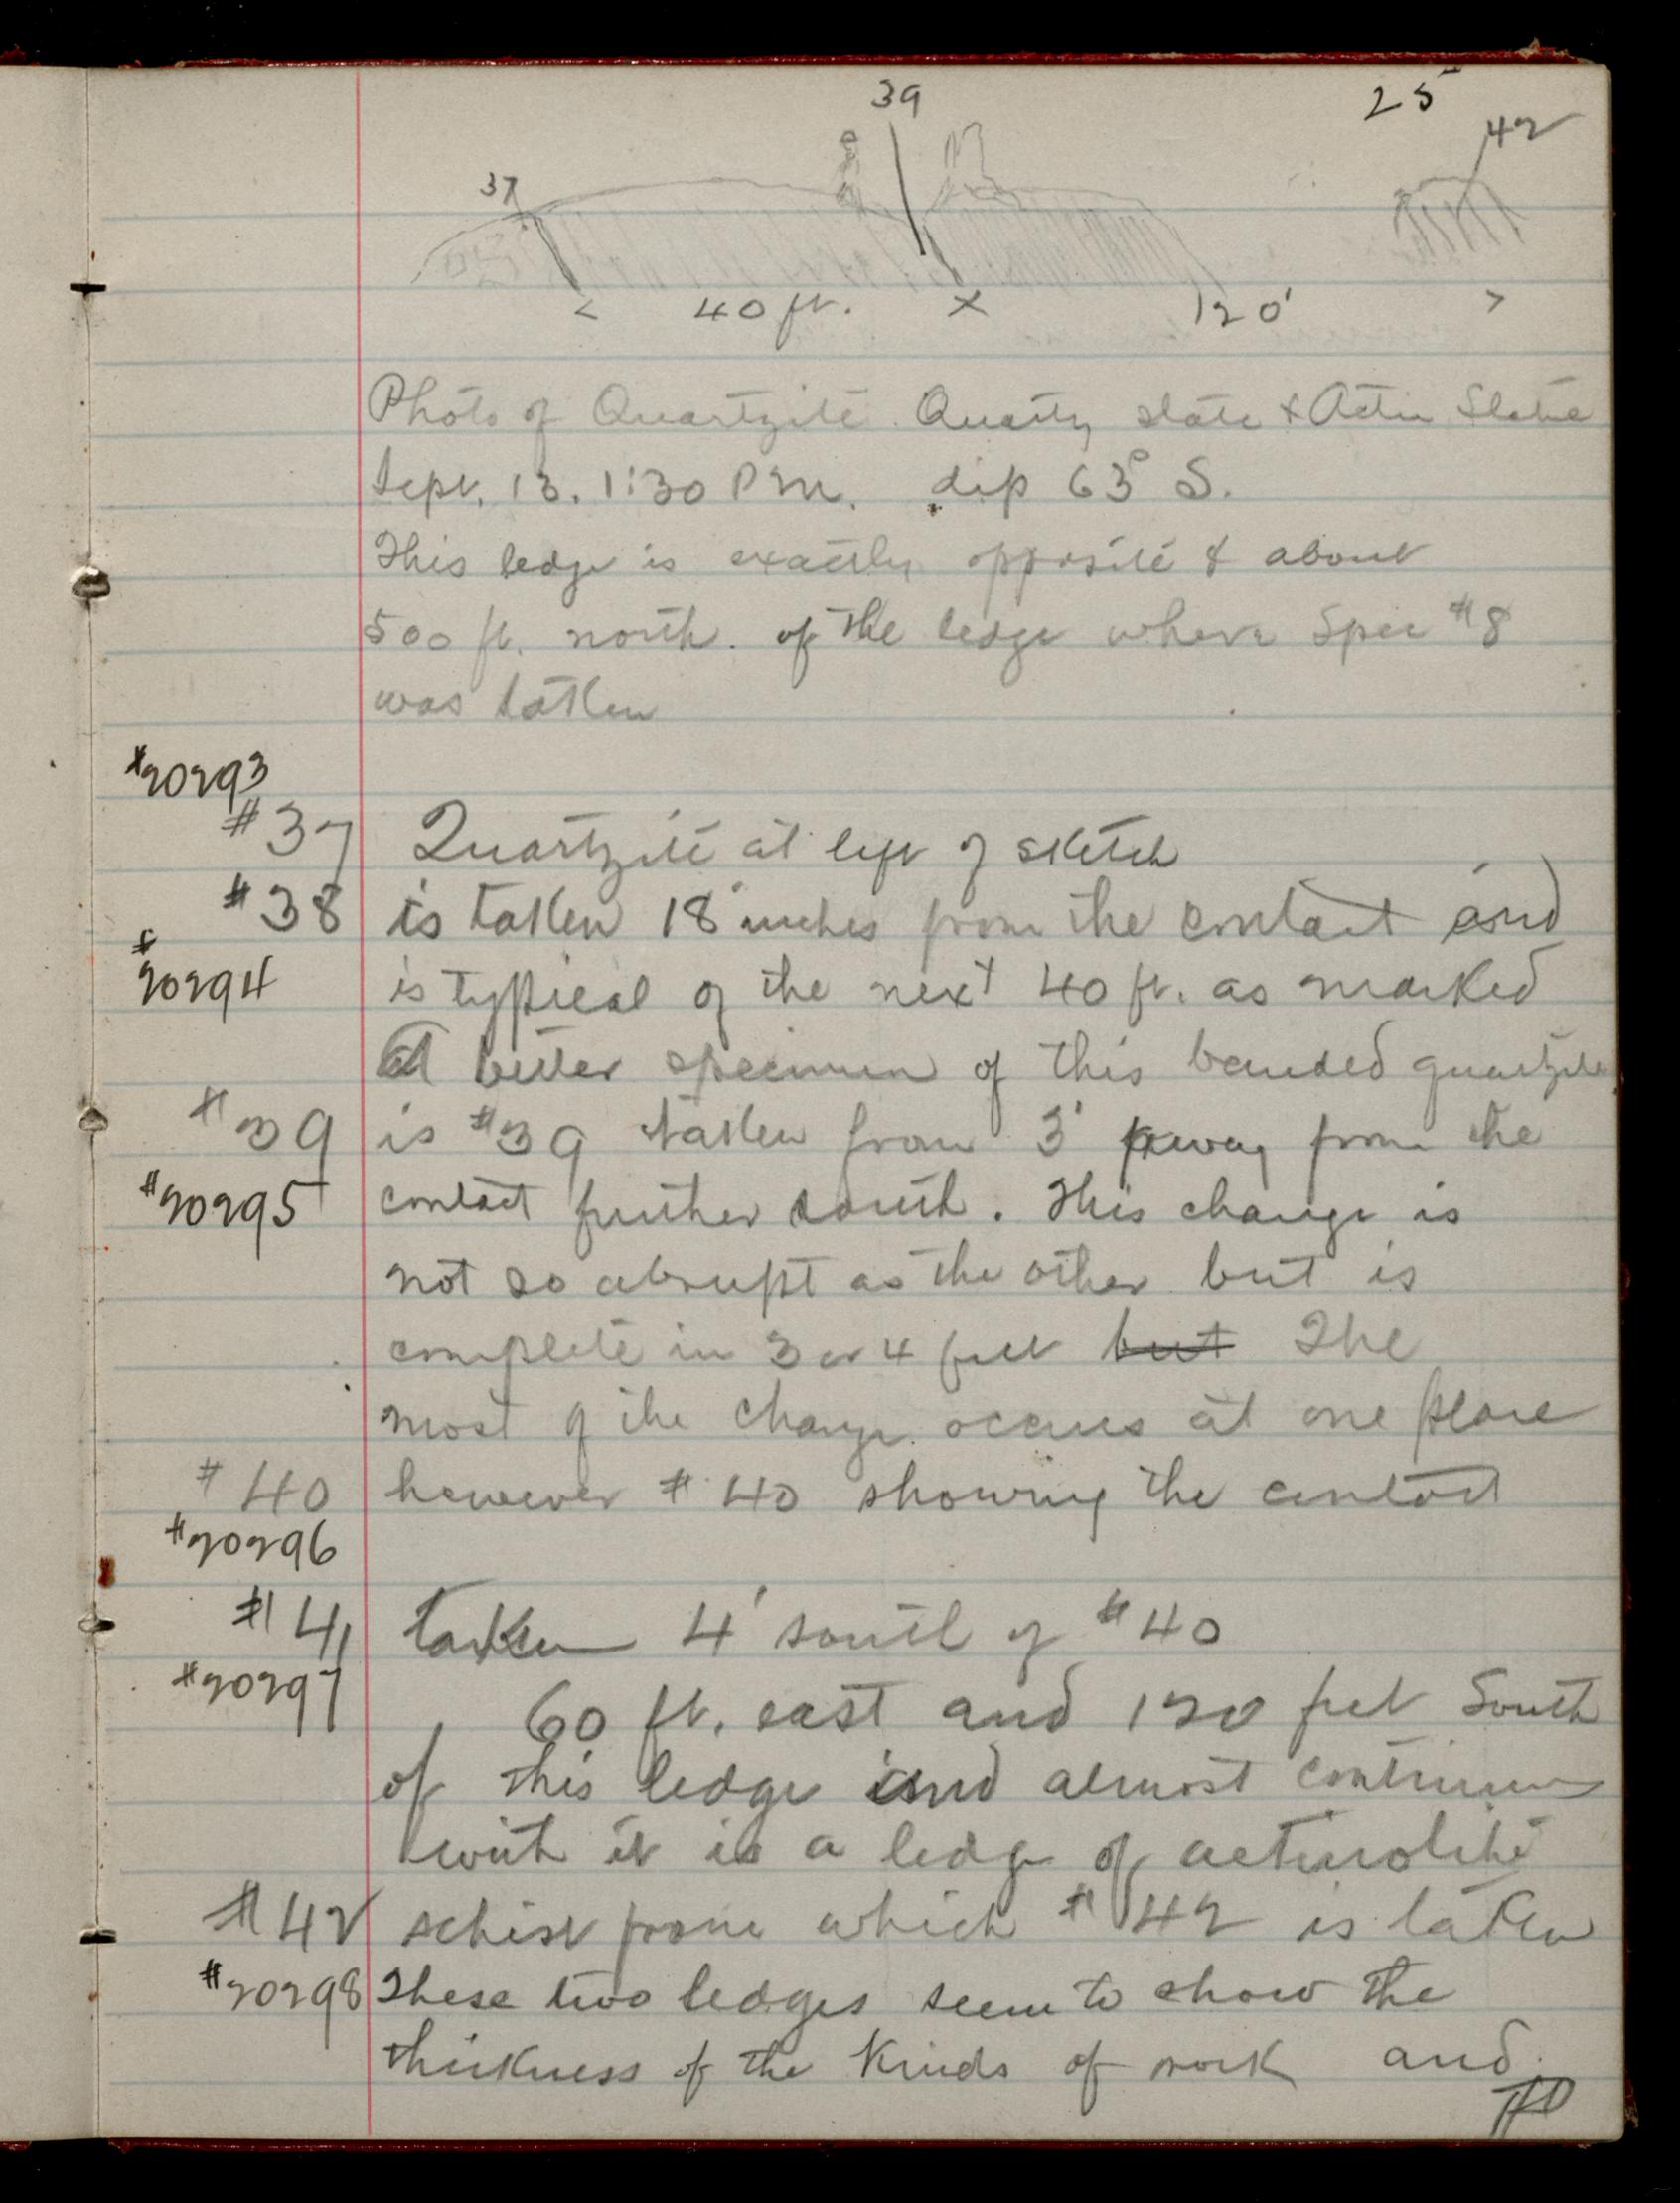 25
39
42
37
< 40 ft. × 120' >
Photo of Quartzite Quartz slate & Actin Slate
Sept. 13. 1:30 PM. dip 63° S.
This ledge is exactly opposite & about
500 ft. north. of the ledge where Spec #8
was taken
#20293
#37 Quartzite at left of sketch
#38 is taken 18 inches from the contact and
#20294 is typical of the next 40 ft. as marked
A better specimen of this banded quartzite
#39 is #39 taken from 3' away from the
#20295 contact further south. This change is
not so abrupt as the other but is
complete in 3 or 4 feet but The
most of the change occurs at one place
#40 however #40 showing the contact
#20296
#41 taken 4' south of #40
#20297
60 ft. east and 120 feet South
of this ledge and almost continuous
with it is a ledge of actinolite
#42 schist from which #42 is taken
#20298 These two ledges seem to show the
thickness of the kinds of rock and